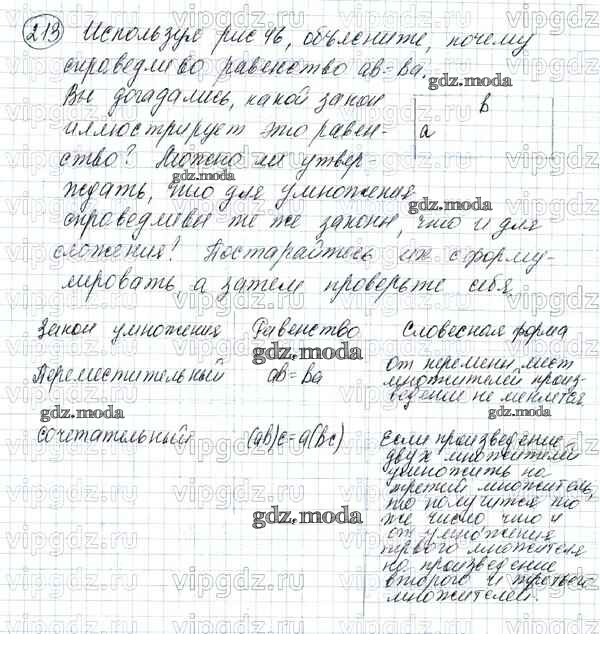 213 Используя рис 46, объясните, почему
справедливо равенство ab=ba.
gdz.moda
Вы догадались, какой закон
иллюстрирует это равен-
ство? Можно ли утвер-
ждать, что для умножения
справедливы те же законы, что и для
сложения? Постарайтесь их сформу-
лировать, а затем проверьте себя
b
a
gdz.moda
gdz.moda
Закон умножения Равенство Словесная форма
Переместительный ab=ba
от перемены мест
множителей произ-
ведение не меняется.
gdz.moda
gdz.moda
gdz.moda
сочетательный (ab)c=a(bc)
Если произведение
двух множителей
умножить на
третий множитель,
то получится то
же число, что и
от умножения
первого множителя
на произведение
второго и третьего
множителей.
gdz.moda
gdz.moda
vipgdz.ru